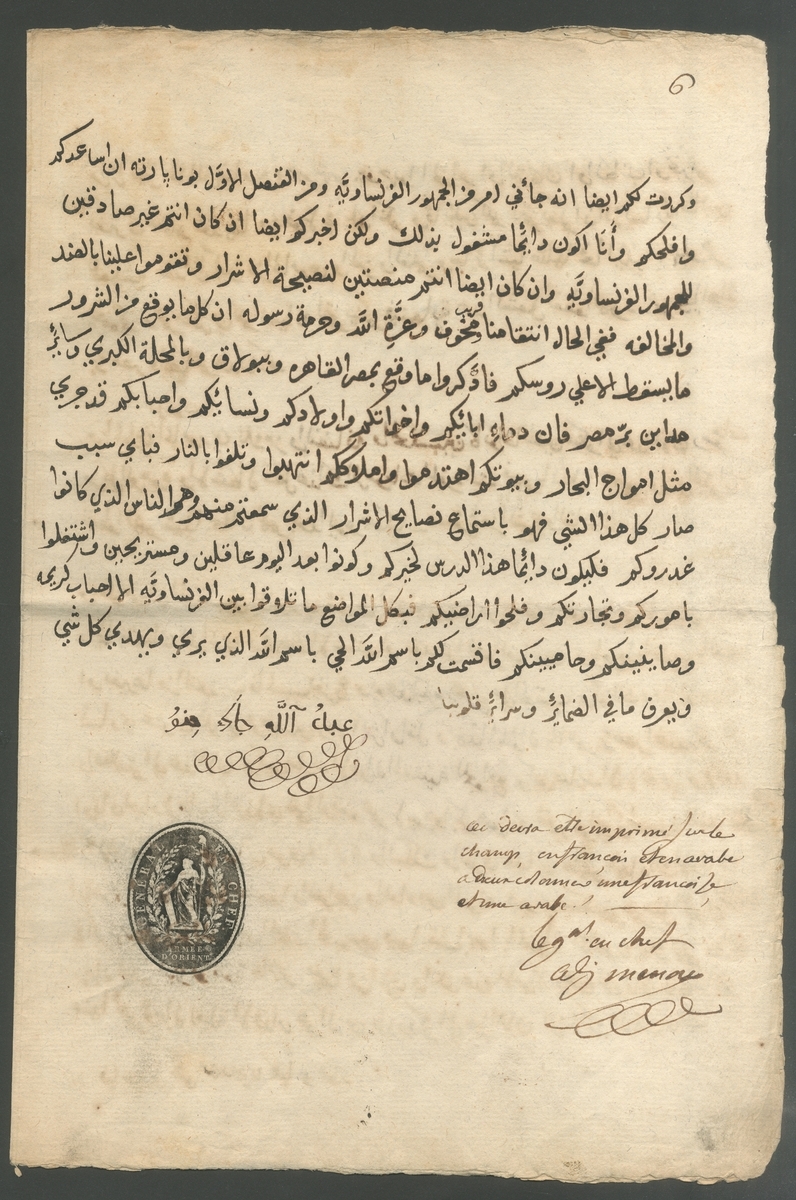 6
وكررت لكم ايضا انه جائني امر من الجمهور الفرنساويَّه ومن القنصل الاوَّل بونا پارته ان اساعدكم
وافلحكم وأنَا اكون دايمًا مشغول بذلك ولكن اخبركم ايضا ان كان انتم غير صادقين
للجمهور الفرنساويَّه وان كان ايضا انتم منصتين لنصيحة الاشرار وتقوموا علينا بالضد
والمخالفه ففي الحال انتقامنا قريب مخوف وعزَّة اللَّه وحرمة رسوله ان كل ما يوقع من الشرور
ما يسقط الا علي روسكم فاذكروا ما وقع بمصر القاهره وببولاق وبالمحلة الكبري وسائر
مداين برّ مصر فان دماء ابائكم واخواتكم واولادكم ونسائكم واحبابكم قد جري
مثل امواج البحار وبيوتكم اهتدموا واملاككم انتهبوا وتلفوا بالنار فباي سبب
صار كل هذا الشي فهو باستماع نصايح الاشرار الذي سمعتم منهم وهم الناس الذي كانوا
غدروكم فليكون دايمًا هذا الدرس لخيركم وكونوا بعد اليوم عاقلين ومستريحين واشتغلوا
باموركم وتجارتكم وفلحوا اراضيكم فبكل المواضع ما تلاقوا بين الفرنساويَّه الا احباب كريمه
وصاينينكم وحاميينكم فاقسمت لكم باسم اللَّه الحي باسم اللَّه الذي يري ويهدي كل شي
ويعرف ما في الضمائر وسرائر قلوبنا
عبدُ آللَّهِ جاك منو
ceci devra estre imprimé sur le
champ, en françois et en arabe
a deux colonnes une françoise
et une arabe.
le gal. en chef
abj menou
GENERAL EN CHEF
ARMEE
D'ORIENT